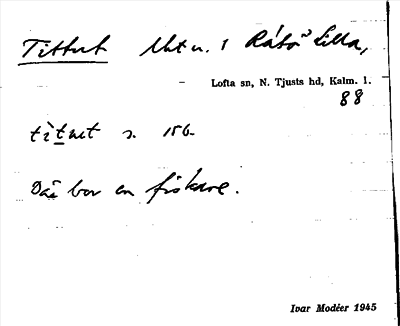 Tittut Utt u. i Råtö Lilla,
Lofta sn, N. Tjusts hd, Kalm. l.
88
tìtut s. 156
Där bor en fiskare.
Ivar Modéer 1945